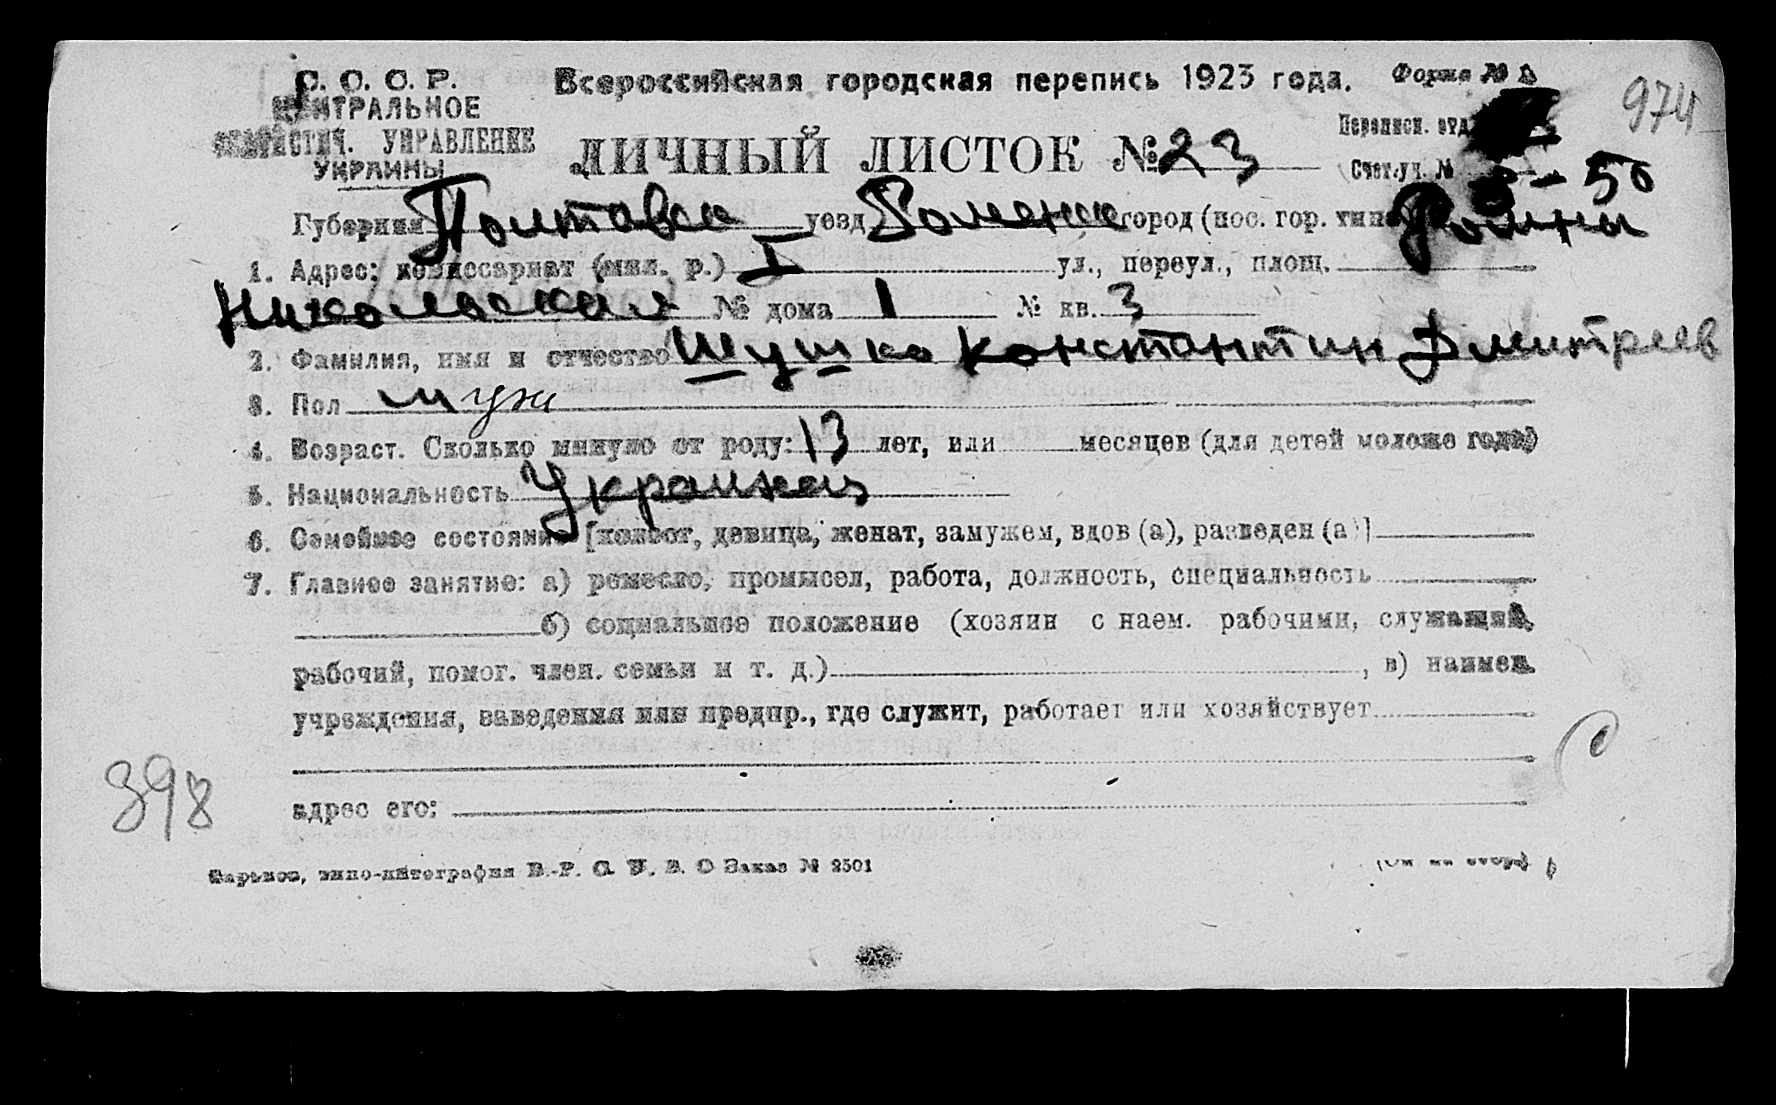 С. С. С. Р.
ЦЕНТРАЛЬНОЕ
СТАТИСТИЧ. УПРАВЛЕНИЕ
УКРАИНЫ
Всероссийская городская перепись 1923 года. Форма № 974
ЛИЧНЫЙ ЛИСТОК № 23 Переписн. отд.
Счет. уч. № – 50
Губерния Полтавск уезд Роменск город (пос. гор. типа) Ромны
1. Адрес: комиссариат (мил. р.) I ул., переул., площ.
Никольская № дома 1 № кв. 3
2. Фамилия, имя и отчество Шушко Константин Дмитриев
3. Пол муж
4. Возраст. Сколько минуло от роду: 13 лет, или месяцев (для детей моложе года)
5. Национальность Украинец
6. Семейное состояние [холост, девица, женат, замужем, вдов (а), разведен (а)]
7. Главное занятие: а) ремесло, промысел, работа, должность, специальность
б) социальное положение (хозяин с наем. рабочими, служащий,
рабочий, помог. член. семьи и т. д.) , в) наимен.
учреждения, заведения или предпр., где служит, работает или хозяйствует
398
адрес его:
Харьков, типо-литография В.-Р. С. У. В. О Заказ № 2501